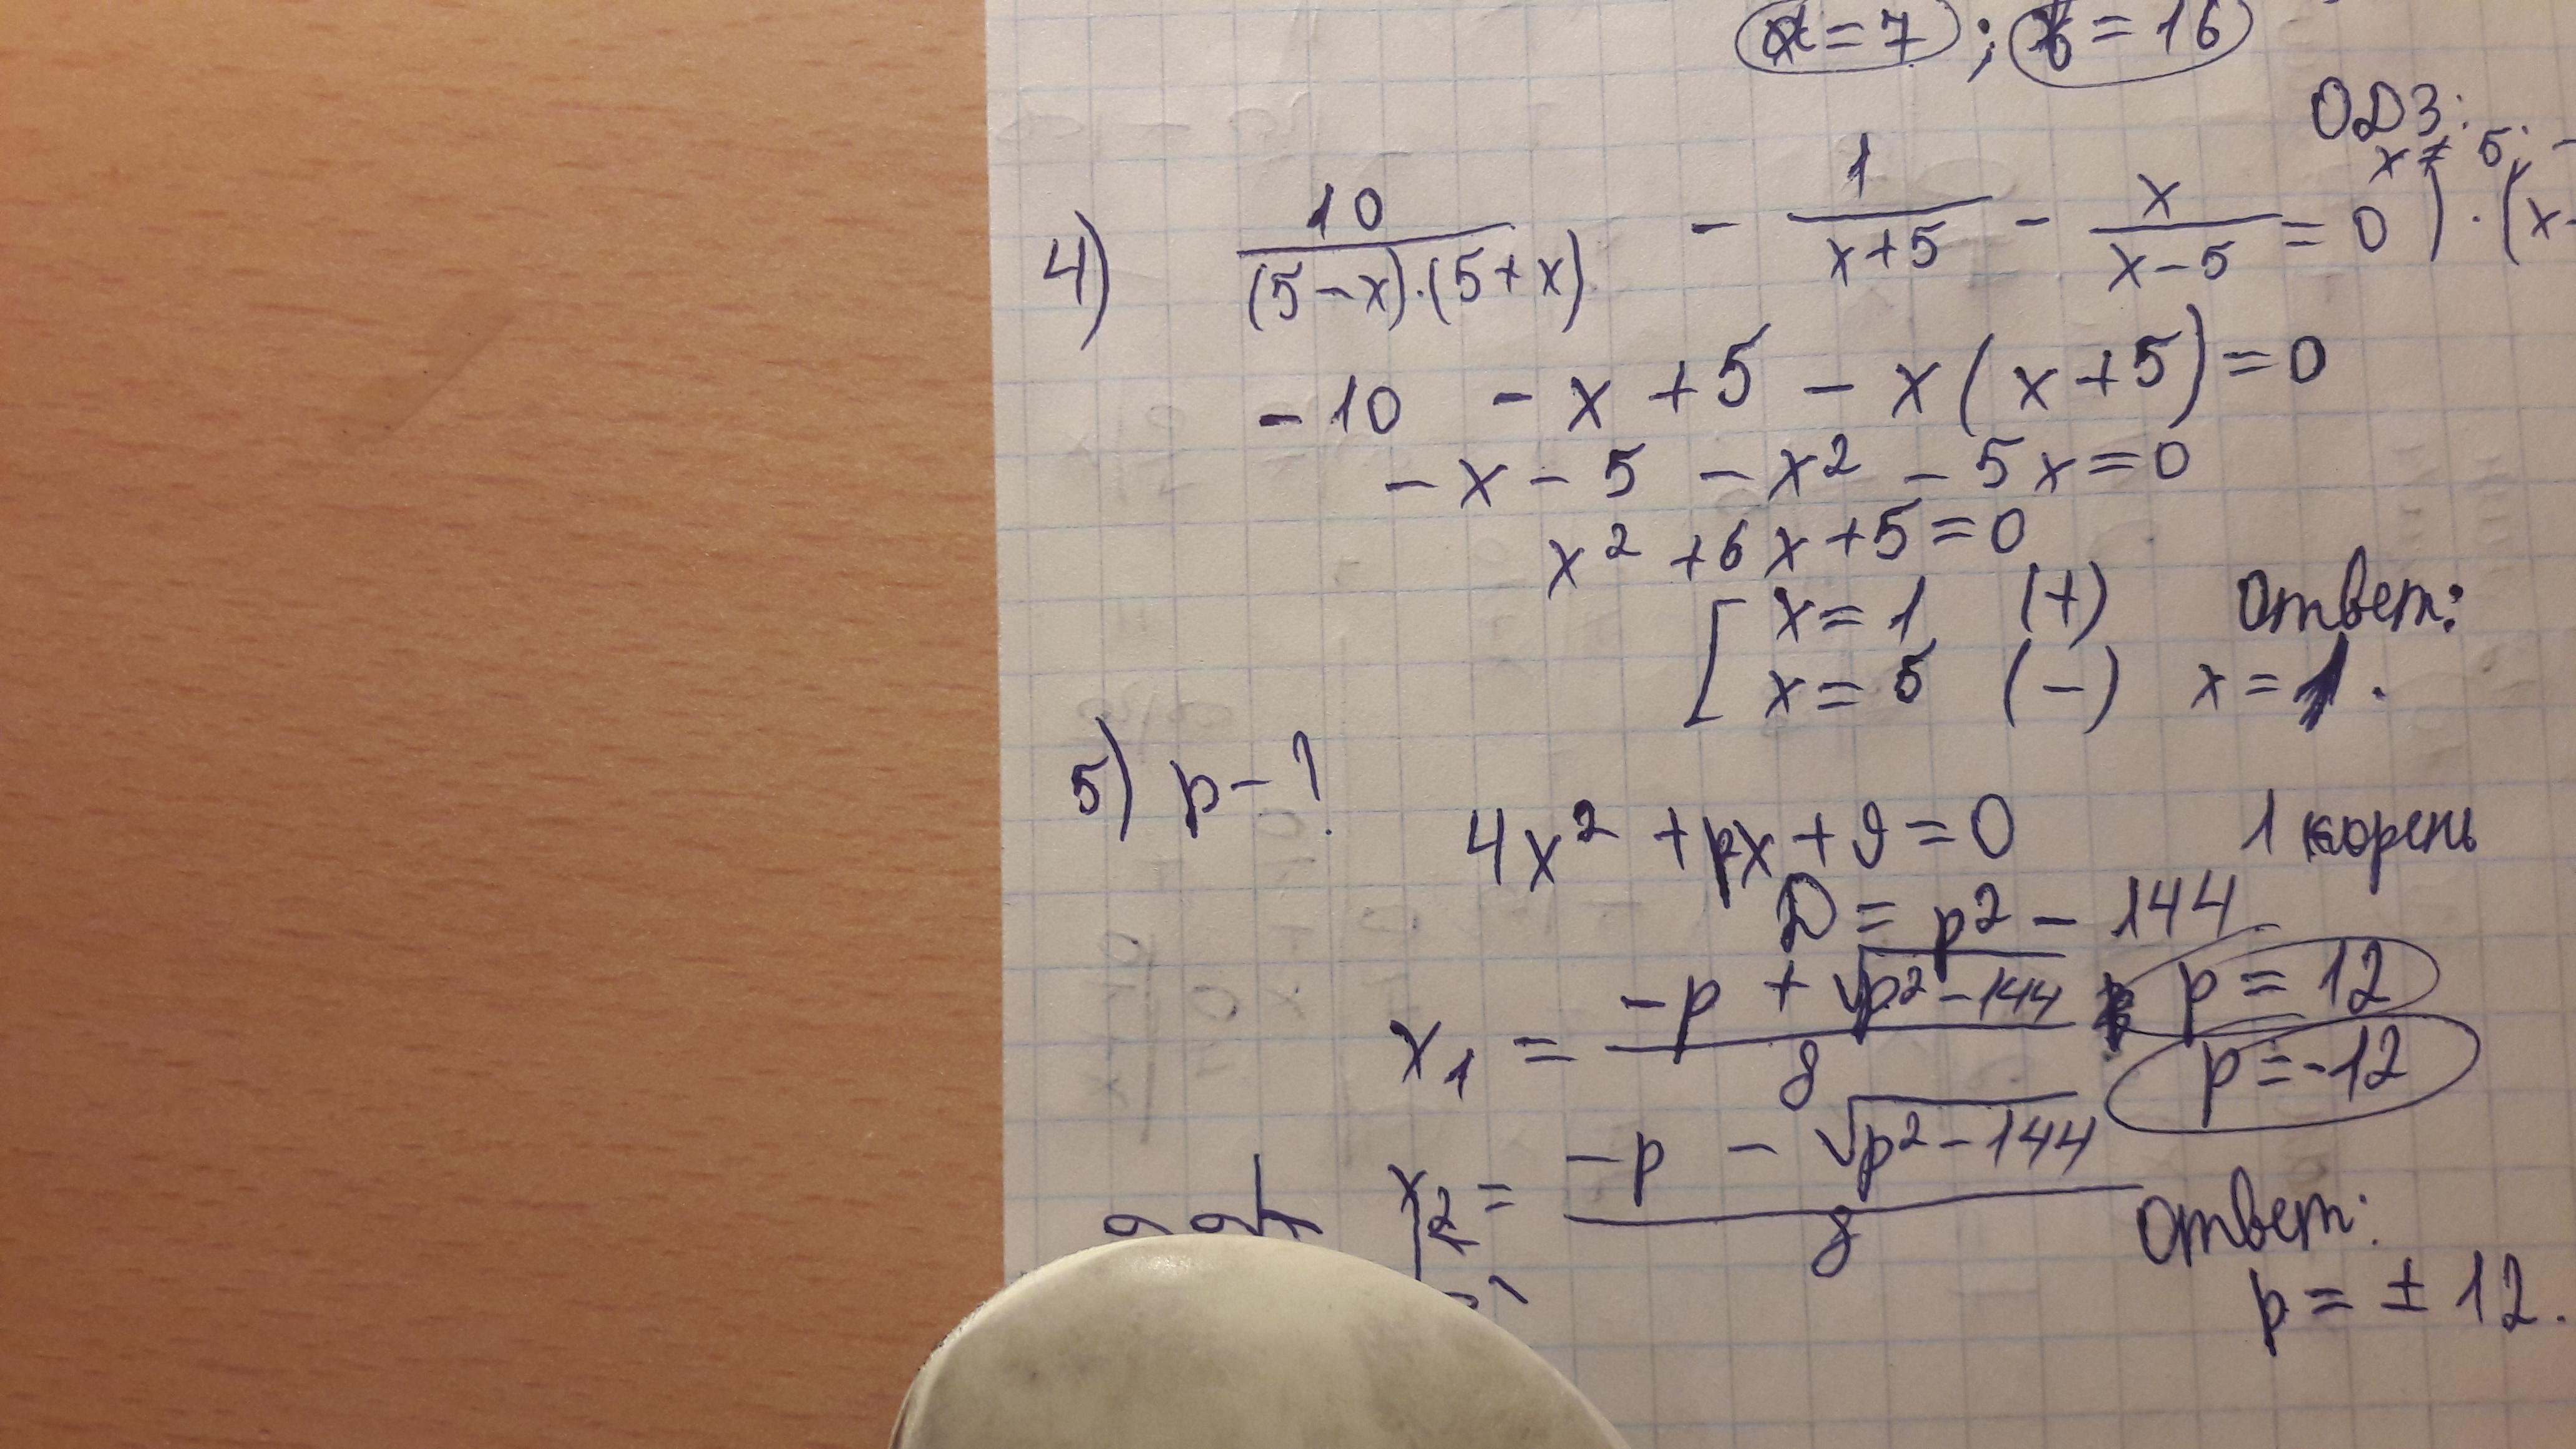 x = 7 ; y = 16
ОДЗ:
x ≠ 5; -
4) 10/((5-x)·(5+x)) - 1/(x+5) - x/(x-5) = 0) · (x-
-10 - x + 5 - x(x+5) = 0
-x - 5 - x² - 5x = 0
x² + 6x + 5 = 0
[ x = 1 (+) Ответ:
x = 5 (-) x = 1.
5) p - ?
4x² + px + 9 = 0 1 корень
D = p² - 144
x₁ = (-p + √(p² - 144))/8 p = 12
p = -12
x₂ = (-p - √(p² - 144))/8
Ответ:
p = ± 12.